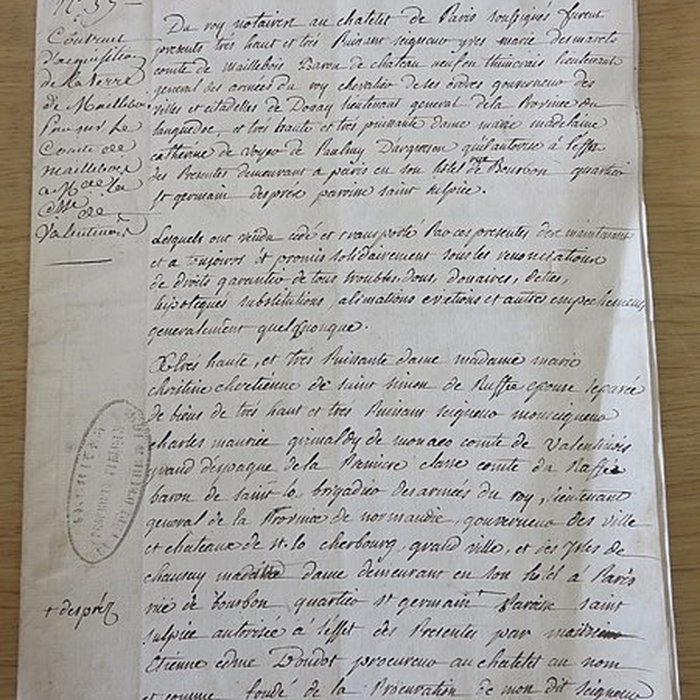 N° 37
Contract
d'acquisition
de la terre
de Maillebois
Pour sur Le
Comte de
Maillebois
a M.de La
Csse de
Valentinois
Du roy notaires au chatelet de Paris soussignés furent
presents trés haut et trés Puissant seigneur yves marie desmarets
comte de maillebois Baron de chateauneuf en thimerais lieutenant
general des armées du roy chevalier de ses ordres gouverneur des
villes et citadelles de Douay lieutenant general de la Province du
languedoc, et trés haute et trés puissante dame marie madelaine
catherine de voyer de Paulmy Dargenson quil autorise à l'effet
des Presentes demeurant a paris en son hôtel rue de Bourbon quartier
st germain desprès paroisse saint sulpice.
Lesquels ont vendu cedé et transporté Par ces presentes des maintenant
et a toujours et promis solidairement sous les renonciations
de droits garantir de tous troubles, dons, doüaires, dettes,
hipoteques substitutions, alienations evictions et autres empechemens
generalement quelquonque.
A trés haute, et trés Puissante dame madame marie
christine chretienne de saint simon de Ruffec epouse separée
de biens de trés haut et trés Puissant seigneur monseigneur
charles maurice grimaldy de monaco comte de Valentinois
grand d'espagne de la Premiere classe comte du Raffec
baron de saint lo brigadier des armées du roy, lieutenant
general de la Province de normandie, gouverneur des ville
et chateaux de st lo cherbourg, grand ville, et des Isles de
chausey madite dame demeurant en son hôtel à Paris
rüe de bourbon quartier st germain + Paroisse saint
+ desprèz
sulpice autorisée à l'effet des Presentes par maitre
Etienne edme Doudot procureur au chatelet au nom
et comme fondé de la Procuration de mon dit seigneur